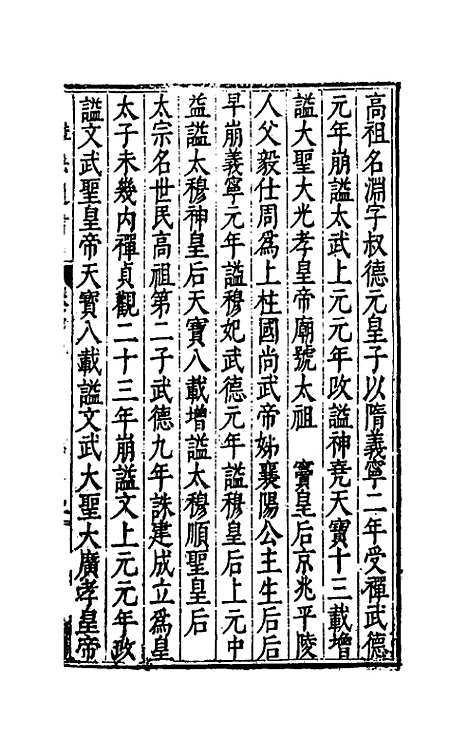 高祖名淵字叔德元皇子以隋義寧二年受禪武德
元年崩謚太武上元元年改謚神堯天寶十三載增
謚大聖大光孝皇帝廟號太祖　竇皇后京兆平陵
人父毅仕周爲上柱國尚武帝姊襄陽公主生后后
早崩義寧元年謚穆妃武德元年謚穆皇后上元中
益謚太穆神皇后天寶八載增謚太穆順聖皇后
太宗名世民高祖第二子武德九年誅建成立爲皇
太子未幾內禪貞觀二十三年崩謚文上元元年改
謚文武聖皇帝天寶八載謚文武大聖大廣孝皇帝